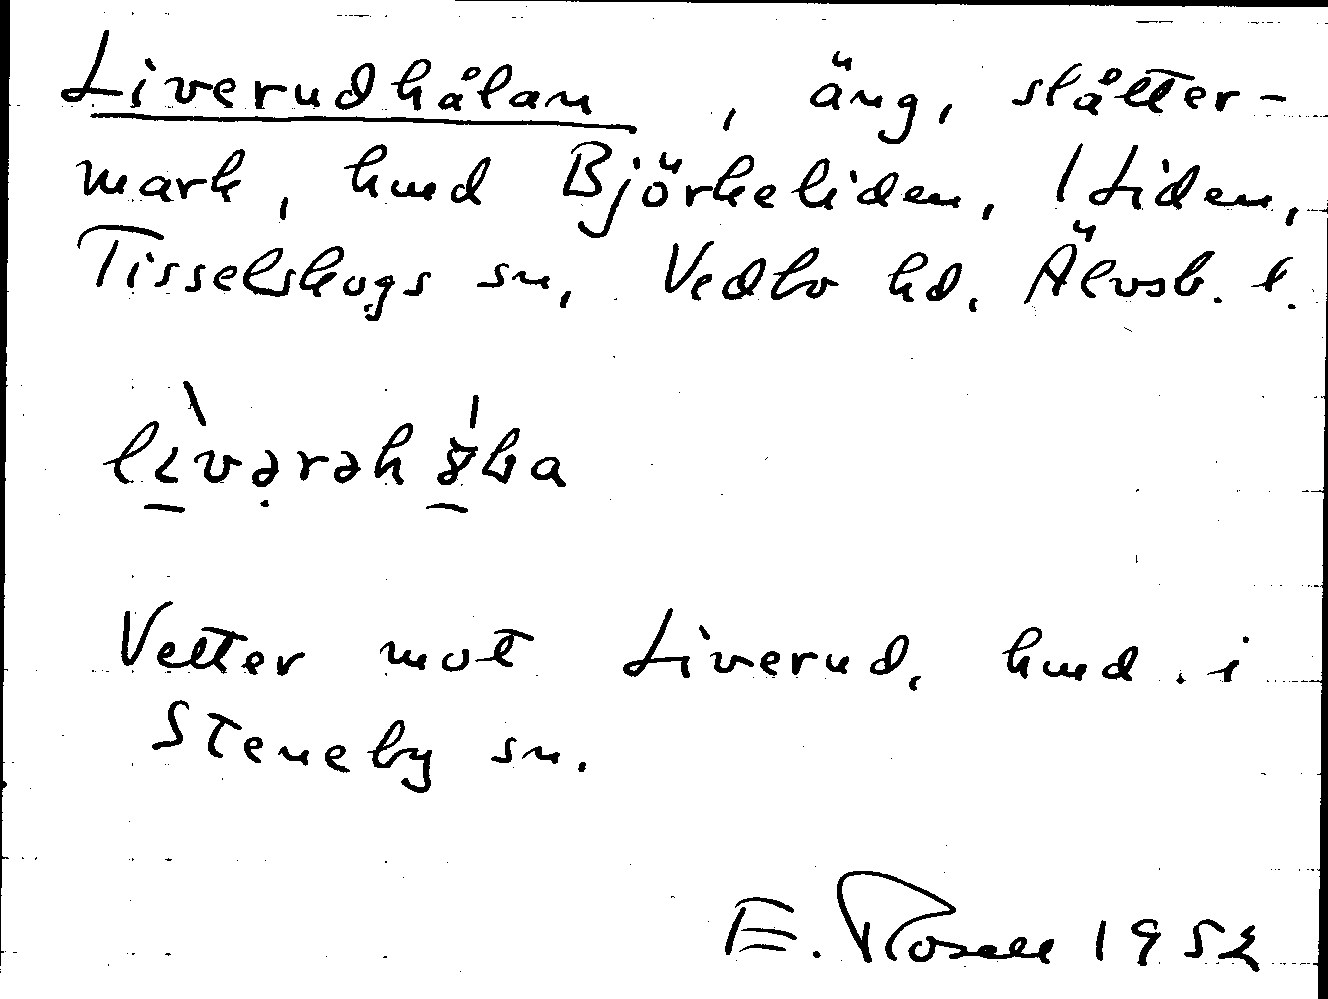 Liverudhålan, äng, slåtter-
mark, hmd Björkeliden, 1 Liden,
Tisselskogs sn, Vedbo hd. Älvsb. l.
Vetter mot Liverud, hmd. i
Steneby sn.
E. Rosell 1952